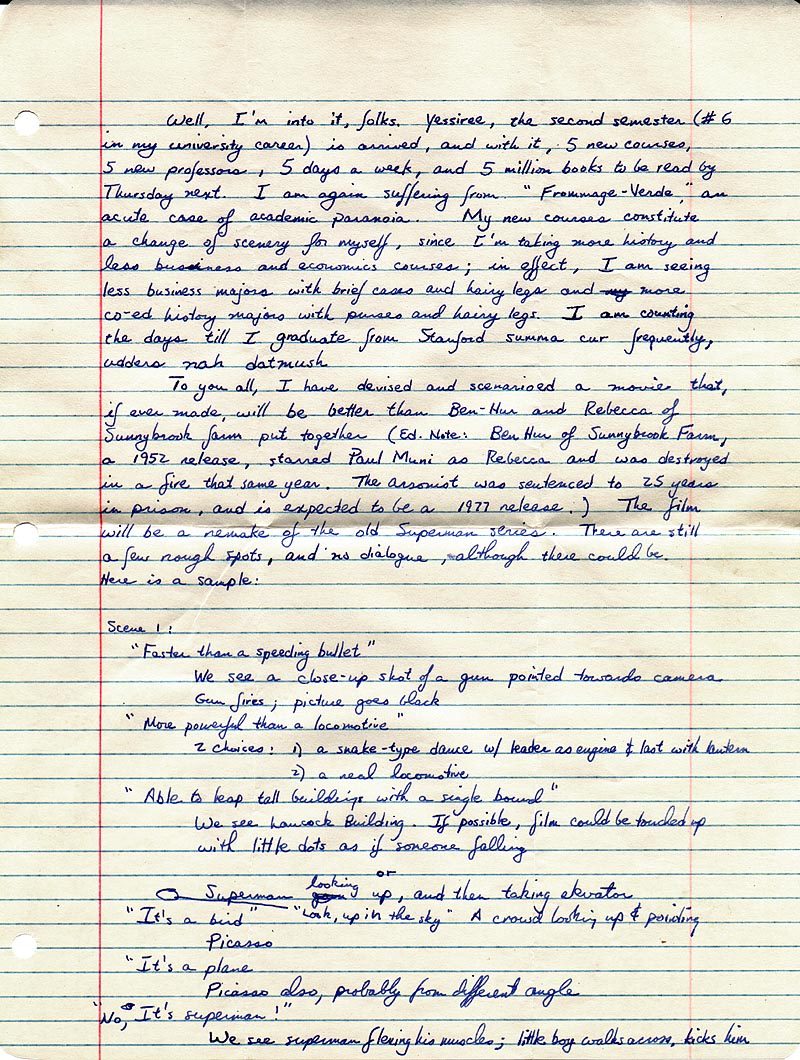 Well, I'm into it, folks. Yessiree, the second semester (#6
in my university career) is arrived, and with it, 5 new courses,
5 new professors, 5 days a week, and 5 million books to be read by
Thursday next. I am again suffering from "Frommage-Verde," an
acute case of academic paranoia. My new courses constitute
a change of scenery for myself, since I'm taking more history and
less business and economics courses; in effect, I am seeing
less business majors with brief cases and hairy legs and more
co-ed history majors with purses and hairy legs. I am counting
the days till I graduate from Stanford summa cur frequently,
udders nah datmush
To you all, I have devised and scenarioed a movie that,
if ever made, will be better than Ben-Hur and Rebecca of
Sunnybrook farm put together (Ed. Note: Ben Hur of Sunnybrook Farm,
a 1952 release, starred Paul Muni as Rebecca and was destroyed
in a fire that same year. The arsonist was sentenced to 25 years
in prison, and is expected to be a 1977 release.) The film
will be a remake of the old Superman series. There are still
a few rough spots, and no dialogue, although there could be.
Here is a sample:
Scene 1:
"Faster than a speeding bullet"
We see a close-up shot of a gun pointed towards camera
Gun fires; picture goes black
"More powerful than a locomotive"
2 choices: 1) a snake-type dance w/ leader as engine & last with lantern
2) a real locomotive
"Able to leap tall buildings with a single bound"
We see Hancock Building. If possible, film could be touched up
with little dots as if someone falling
or
Superman looking up, and then taking elevator
"It's a bird" "Look, up in the sky" A crowd looking up & pointing
Picasso
"It's a plane
Picasso also, probably from different angle
"No, It's superman!"
We see superman flexing his muscles; little boy walks across, kicks him